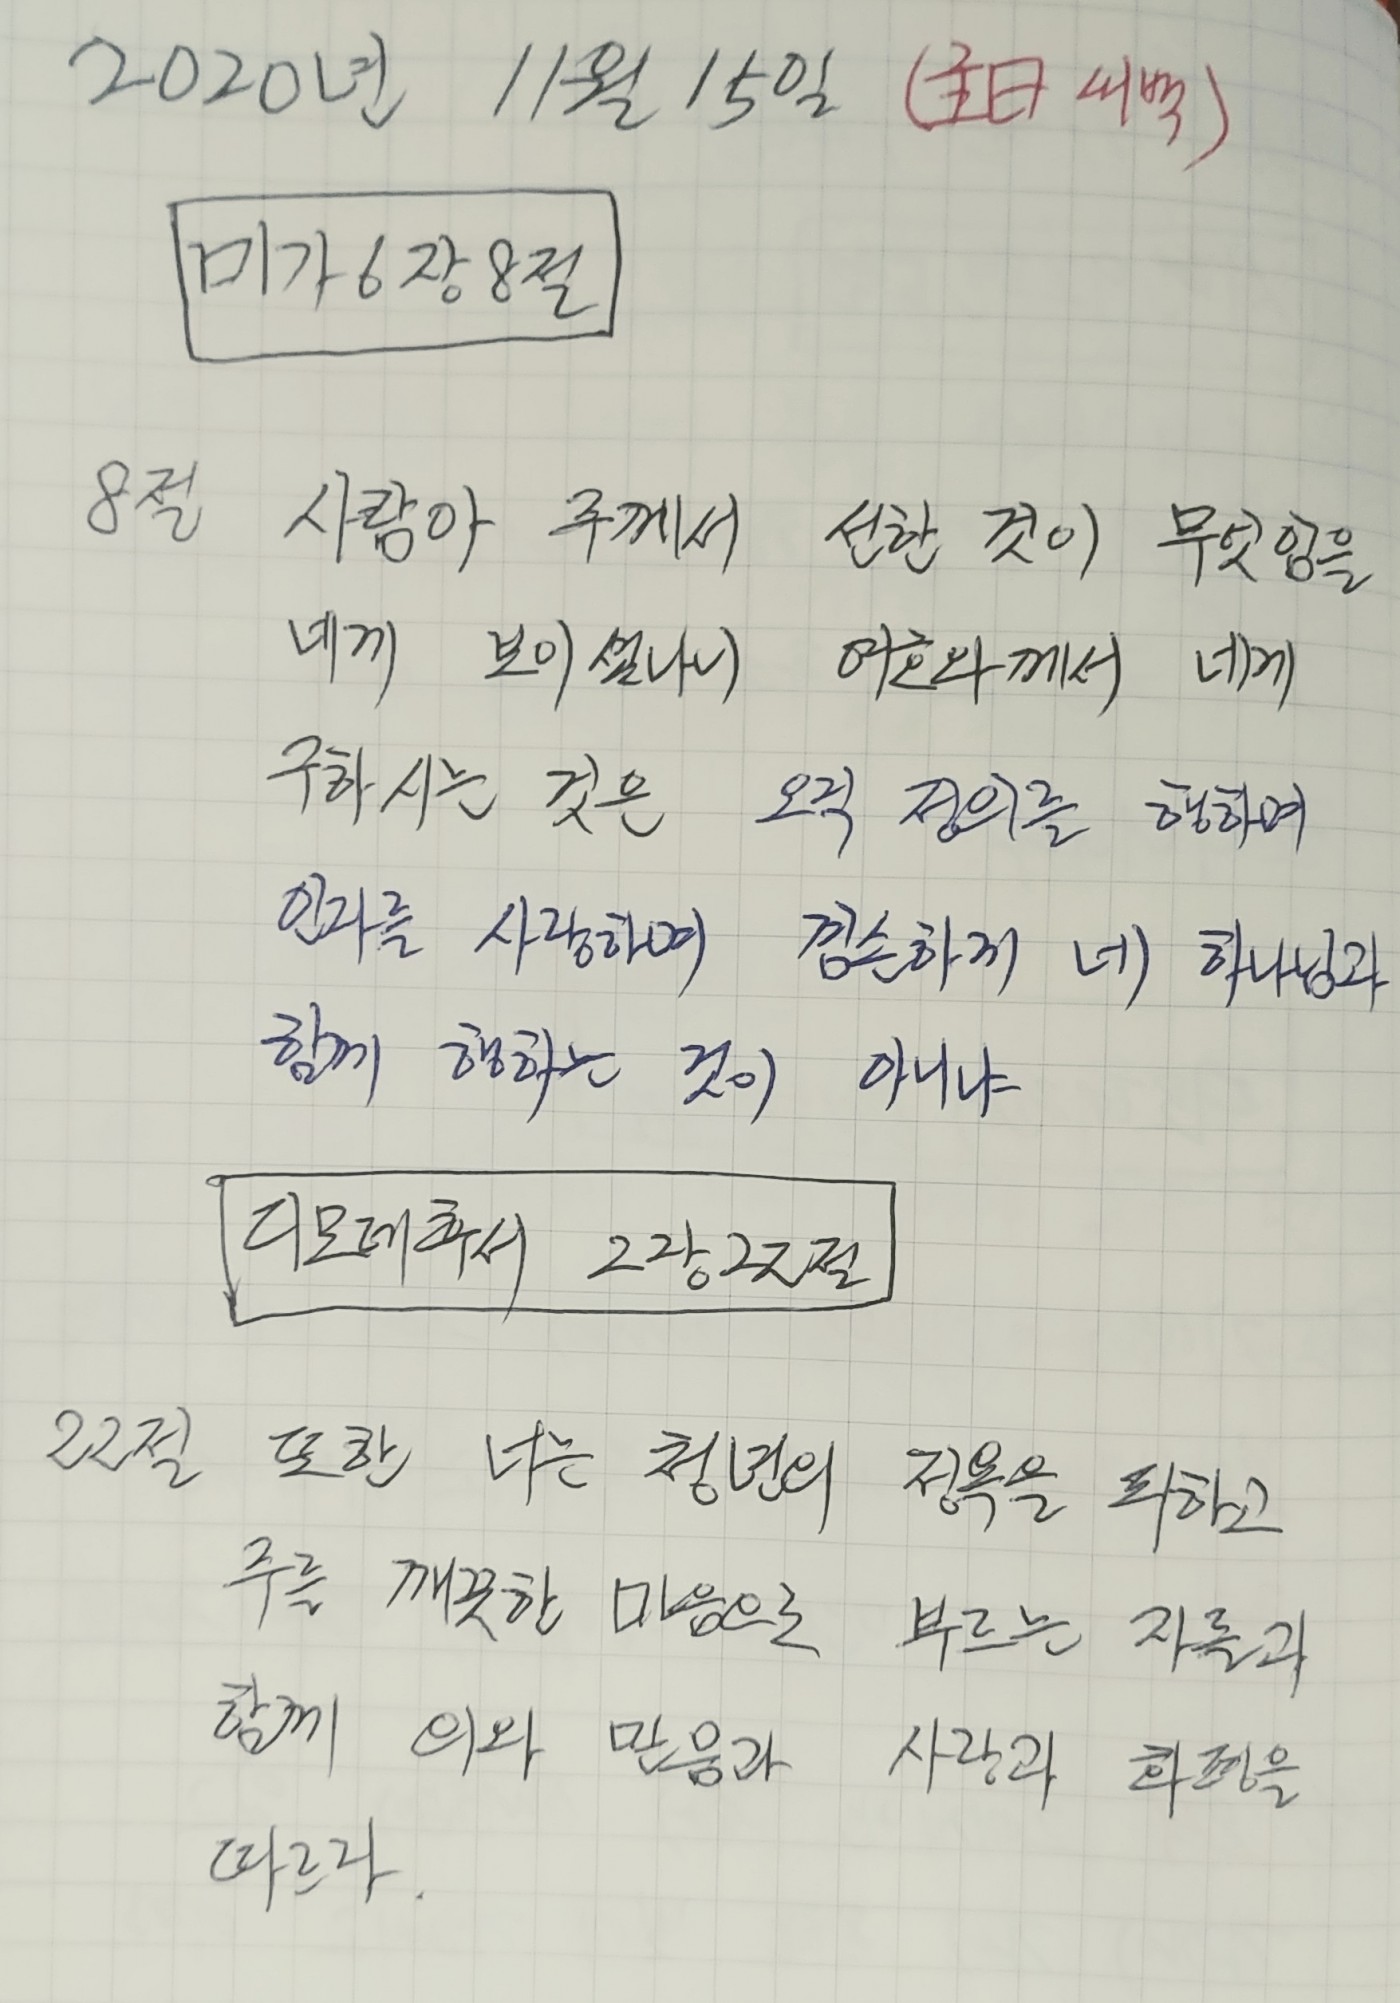 2020년 11월 15일 (主日 새벽)
미가 6장 8절
8절 사람아 주께서 선한 것이 무엇임을
네게 보이셨나니 여호와께서 네게
구하시는 것은 오직 정의를 행하며
인자를 사랑하며 겸손하게 네 하나님과
함께 행하는 것이 아니냐
디모데후서 2장 22절
22절 또한 너는 청년의 정욕을 피하고
주를 깨끗한 마음으로 부르는 자들과
함께 의와 믿음과 사랑과 화평을
따르라.